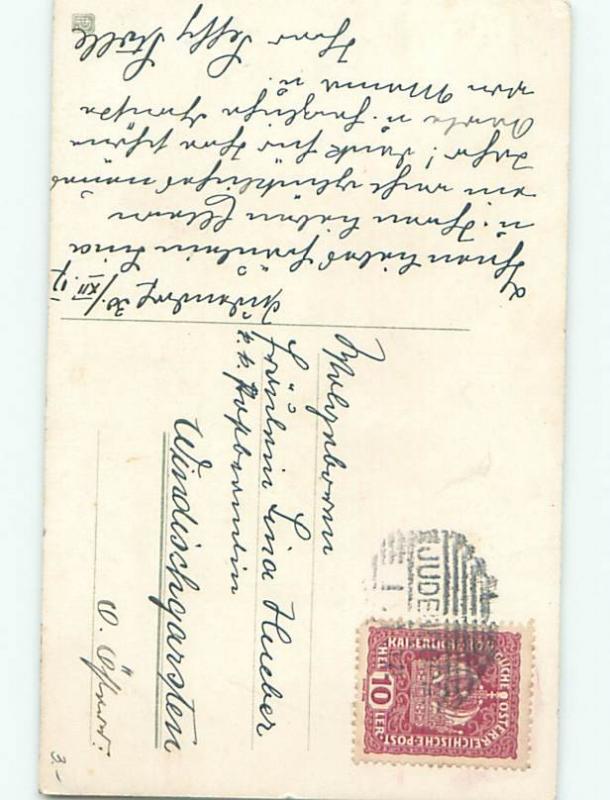 Judenburg 30./XII. 17
Ihnen liebes Fräulein Lina
u. Ihren lieben Eltern
ein recht glückliches neues
Jahr! Dank für Ihre schöne
Karte u. herzliche Grüße
von Mama u.
Ihrer Steffy
Wohlgeboren
Fräulein Lina Hueber
k. k. Postbeamtin
Windischgarsten
O. Österr.
KAISERLICHE KÖNIGLICHE ÖSTERREICHISCHE POST
10
HELLER
JUDEN
3.-